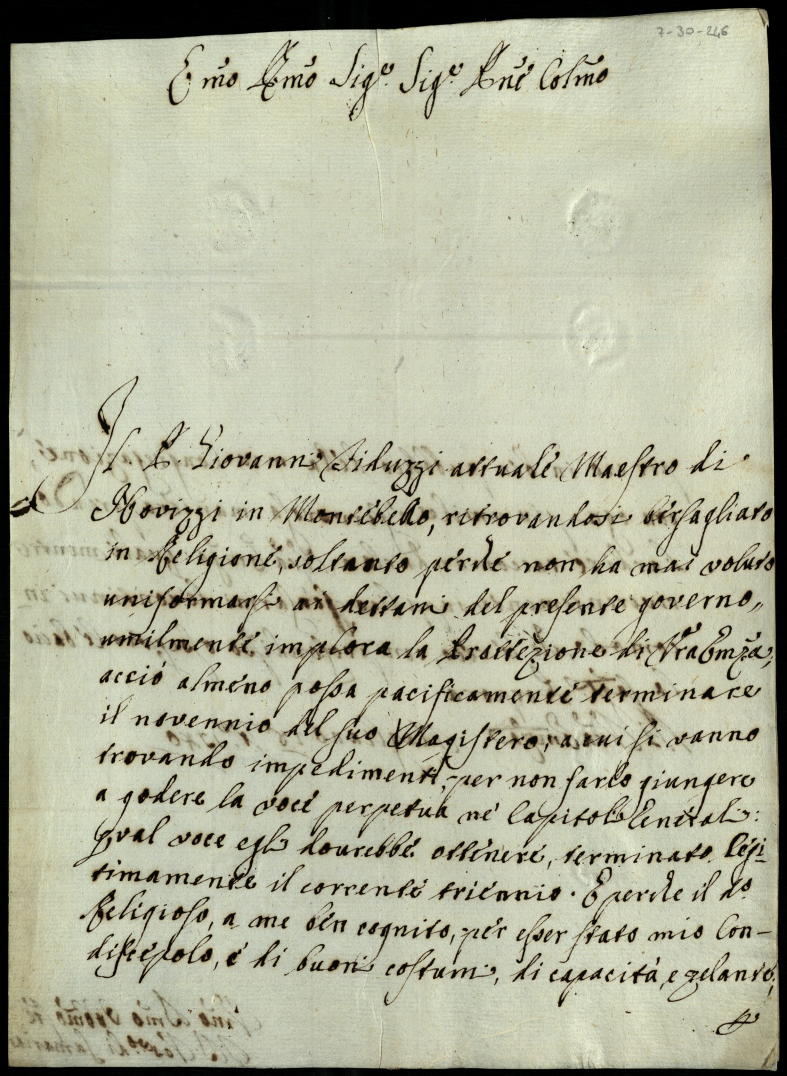 7-30-246
Emo Rmo Sige Sige Pne Colmo
Il P. Giovanni Fiduzzi attuale Maestro di
Novizzi in Montebello, ritrovandosi bersagliato
in Religione, soltanto perche non ha mai voluto
uniformarsi ai dettami del presente governo,
umilmente implora la Prottezione di Vra Emza,
acciò almeno possa pacificamente terminare
il novennio del suo Magistero; a cui si vanno
trovando impedimenti, per non farlo giungere
a godere la voce perpetua ne Capitoli Generali:
qual voce egli dovrebbe ottenere, terminato legi-
timamente il corrente triennio. E perche il do
Religioso, a me ben cognito, per esser stato mio Con-
discepolo, è di buoni costumi, di capacità, e zelante,